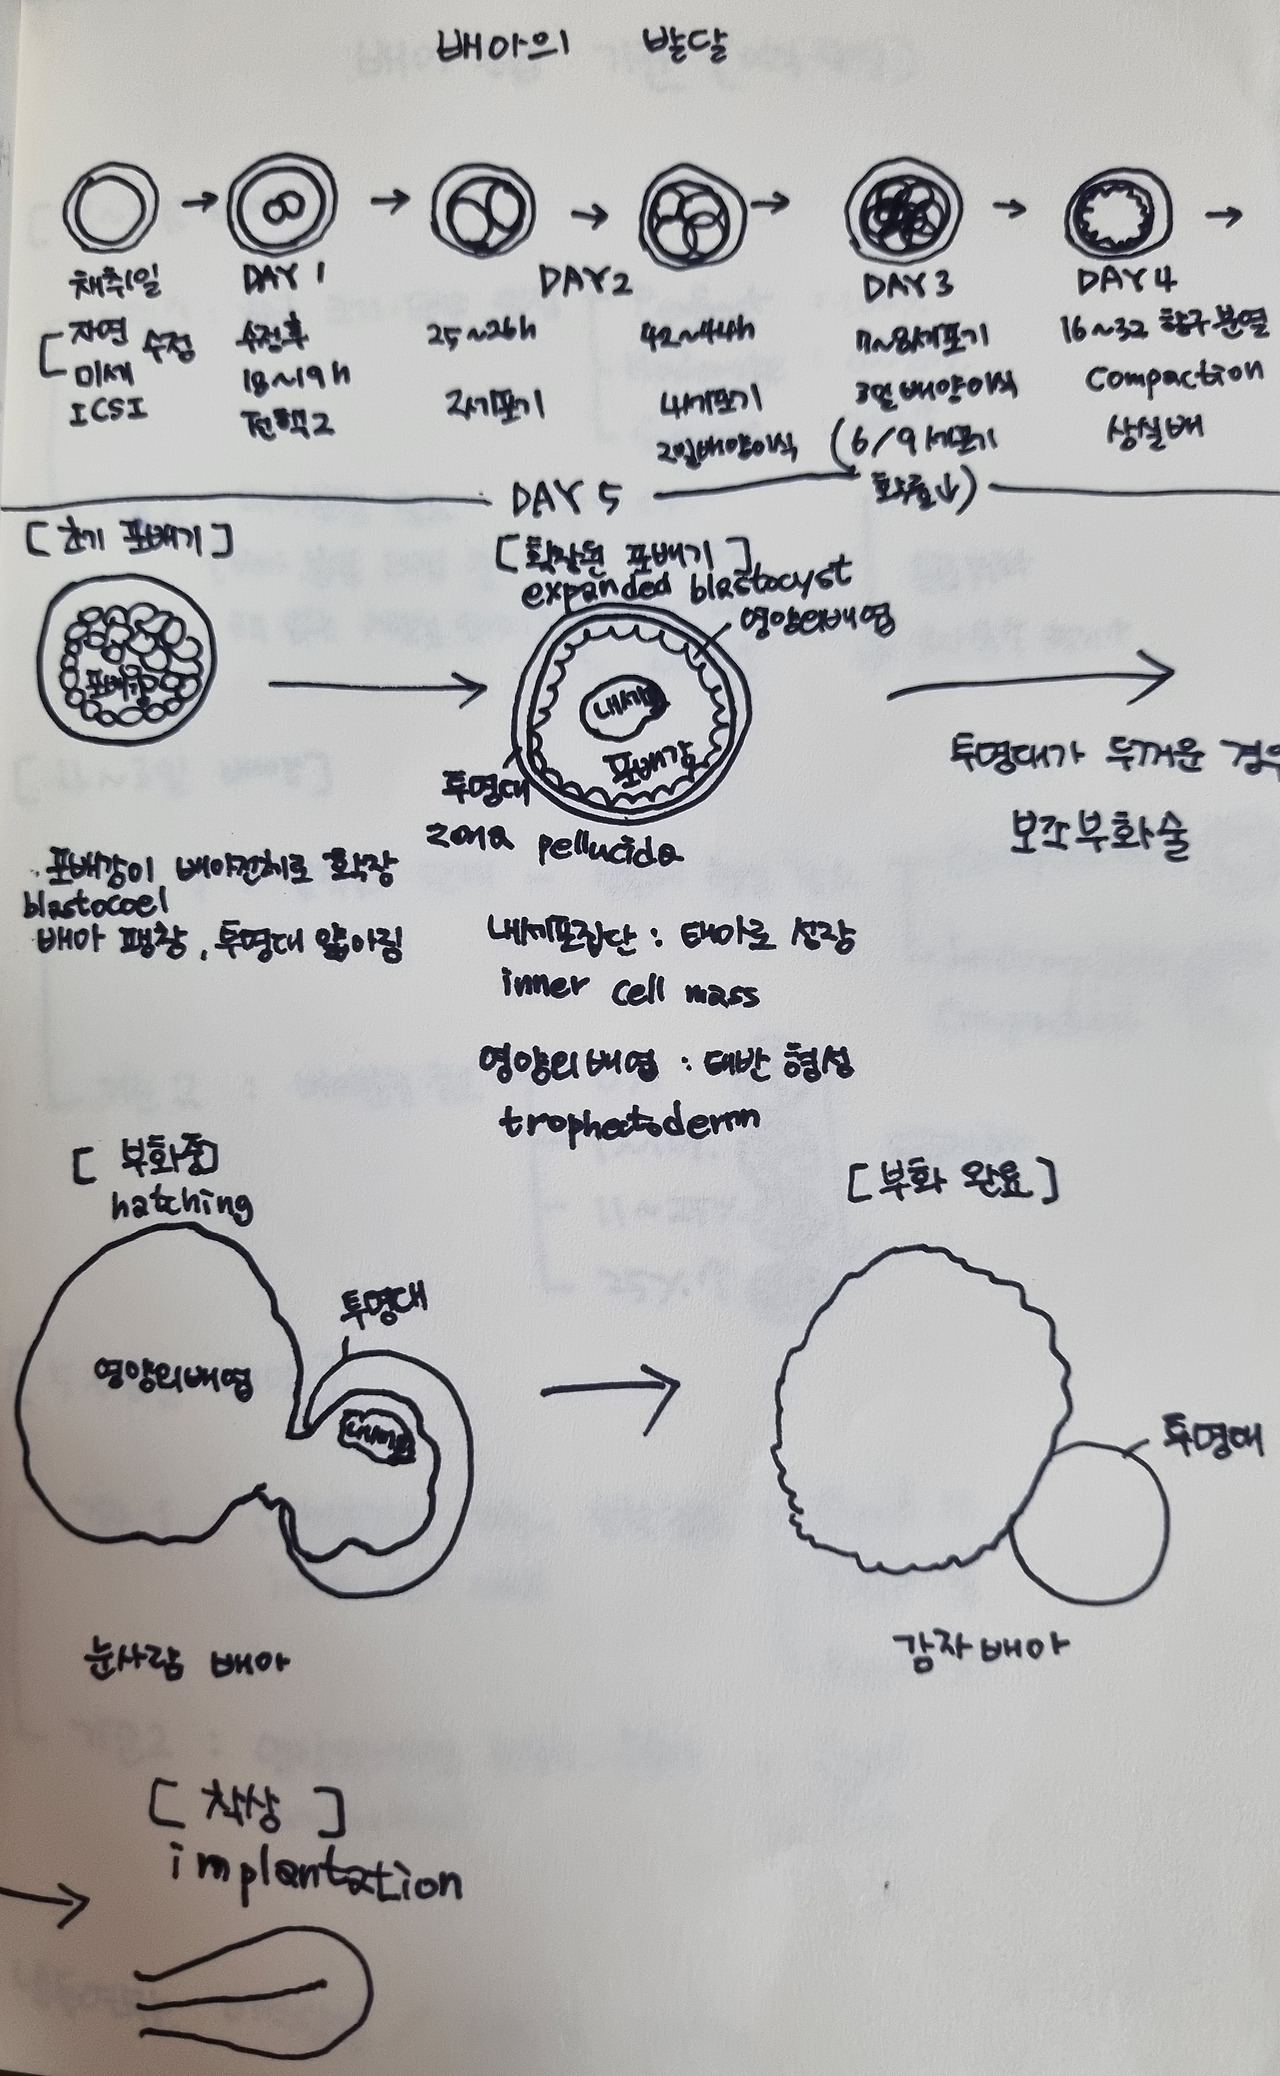 배아의 발달
채취일
자연
미세 수정
ICSI
DAY 1
수정후
18~19h
전핵2
DAY2
25~26h
2세포기
42~44h
4세포기
2일배양이식
DAY3
7~8세포기
3일배양이식
(6/9세포기
확률↓)
DAY4
16~32 할구분열
compaction
상실배
DAY 5
[초기 포배기]
포배강
[확장된 포배기]
expanded blastocyst
영양외배엽
내세포
포배강
투명대
zona pellucida
투명대가 두꺼운 경우
보조부화술
·포배강이 배아전체로 확장
blastocoel
배아 팽창, 투명대 얇아짐
내세포집단 : 태아로 성장
inner cell mass
영양외배엽 : 태반 형성
trophectoderm
[부화중]
hatching
영양외배엽
투명대
눈사람 배아
[부화 완료]
투명대
감자배아
[착상]
implantation